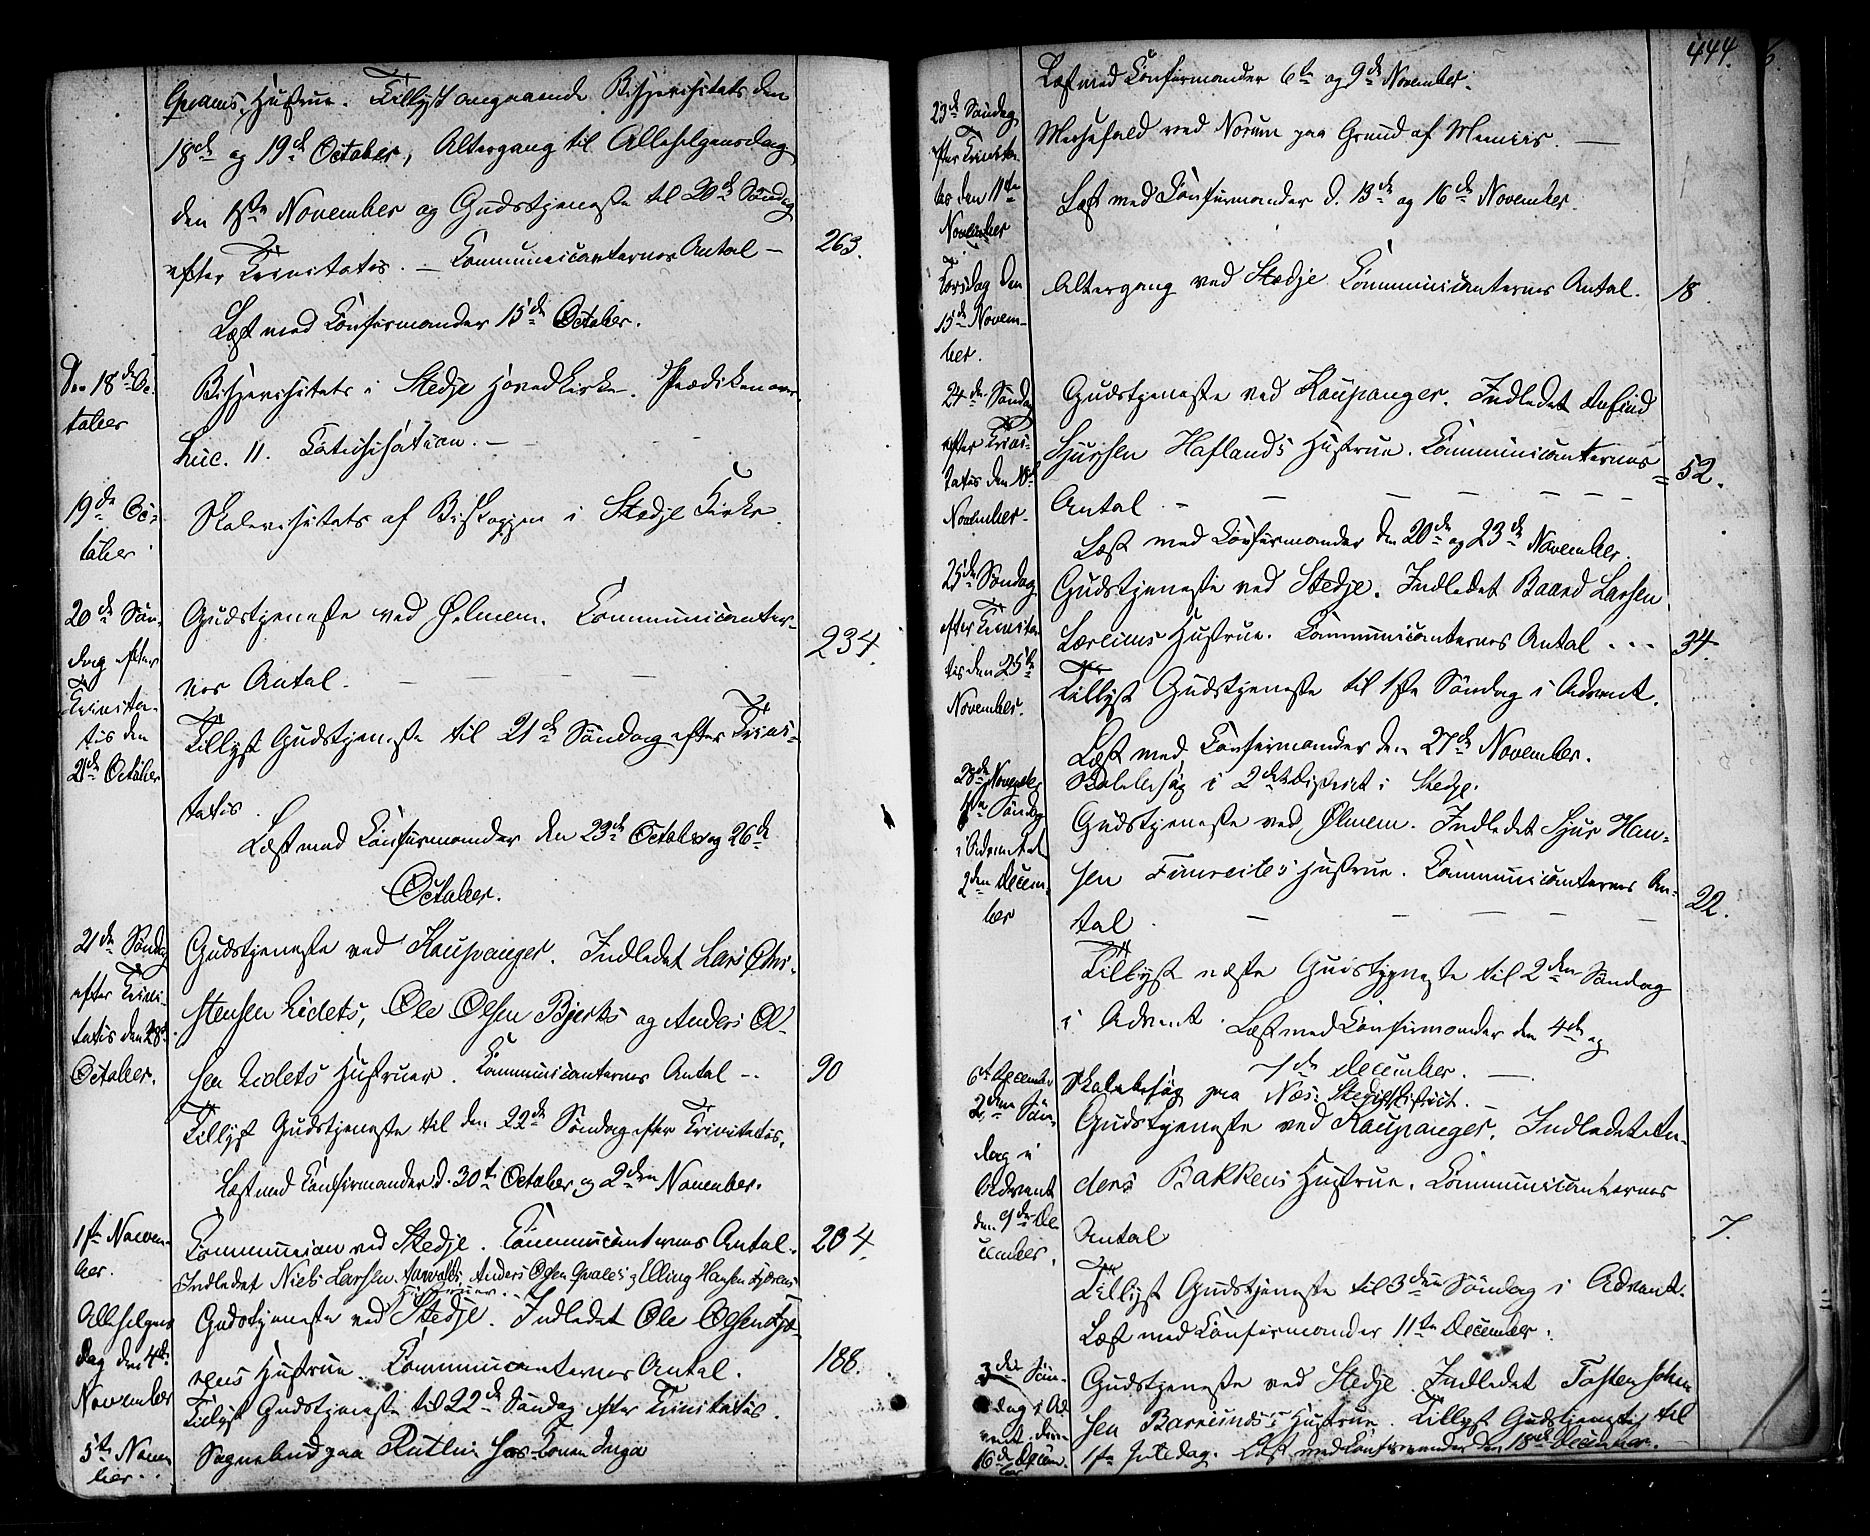 Qvams Hustrue. Tillyst angaaende Bispevisitats den
18de og 19de October, Altergang til Allehelgensdag
den 1ste November og Gudstjeneste til 20de Söndag
efter Trinitatis. – Communicanternes Antal – 263.
Læst med Confirmander 15de October.
Den 18de Oc-
tober
Bispevisitats i Stedje Hovedkirke. Prædiken over
Luc. 11. Catechisation. –
19de Oc-
tober
Skolevisitats af Biskoppen i Stedje Kirke.
20de Sön-
dag efter
Trinita-
tis den
21de October
Gudstjeneste ved Ølmem. Communicanter-
nes Antal. – – – – 234.
Tillyst Gudstjeneste til 21de Söndag efter Trini-
tatis.
Læst med Confirmander den 23de October og 26de
October.
21de Söndag
efter Trini-
tatis den 28de
October.
Gudstjeneste ved Kaupanger. Indledet Lars Chri-
stensen Eidets, Ole Olsen Bjerks og Anders Ol-
sen Eidets Hustruer. Communicanternes Antal –. 90
Tillyst Gudstjeneste til den 22de Söndag efter Trinitatis.
Læst med Confirmander d. 30te October og 2den November.
1ste Novem-
ber.
Communion ved Stedje. Communicanternes Antal. 204.
Indledet Niels Larsen Anders Olsen Qvales og Elling Hansen
Hustruer.
Allehelgens
dag den 4de
November
Gudstjeneste ved Stedje. Indledet Ole Olsen
Hustrue. Communicanternes Antal. 188.
Tillyst Gudstjeneste til 22de Söndag efter Trinitatis.
5te Novem-
ber.
Sognebud paa Rutlin hos Konen Inga
444.
Læst med Confirmander 6te og 9de November.
23de Söndag
efter Trinita-
tis den 11te
November
Messefald ved Norum paa Grund af
Læst med Confirmander d. 13de og 16de November.
og
Torsdag den
15de Novem-
ber.
Altergang ved Stedje Communicanternes Antal. 18
24de Söndag
efter Trini-
tatis den 18de
November.
Gudstjeneste ved Kaupanger. Indledet Anfind
Sjursen Haflands Hustrue. Communicanternes
Antal. – – – – – – 52.
Læst med Confirmander den 20de og 23de November.
25de Söndag
efter Trinita-
tis den 25de
November.
Gudstjeneste ved Stedje. Indledet Baard Larsen
Læreims Hustrue. Communicanternes Antal . . . 34.
Tillyst Gudstjeneste til 1ste Söndag i Advent.
Læst med Confirmander den 27de November.
28de November
Skolebesøg i 2det District i Stedje.
1ste Söndag
i Advent d.
2den Decem-
ber
Gudstjeneste ved Ølmem. Indledet Sjur Han-
sen Fimreites Hustrue. Communicanternes An-
tal. – – – – – 22.
Tillyst næste Gudstjeneste til 2den Söndag
i Advent. Læst med Confirmander den 4de og
7de December. –
6te December
Skolebesøg paa Næs: Stedje District. –
2den Sön-
dag i
Advent
den 9de De-
cember.
Gudstjeneste ved Kaupanger. Indledet An-
ders Bakkens Hustrue. Communicanternes
Antal 7.
Tillyst Gudstjeneste til 3die Söndag i Advent.
Læst med Confirmander 11te December.
3die Sön-
dag i Ad-
vent. den
16de Decem-
ber
Gudstjeneste ved Stedje. Indledet Tosten John-
sen Barsnes's Hustrue. Tillyst Gudstjeneste til
1ste Juledag. Læst med Confirmander den 18de December. –